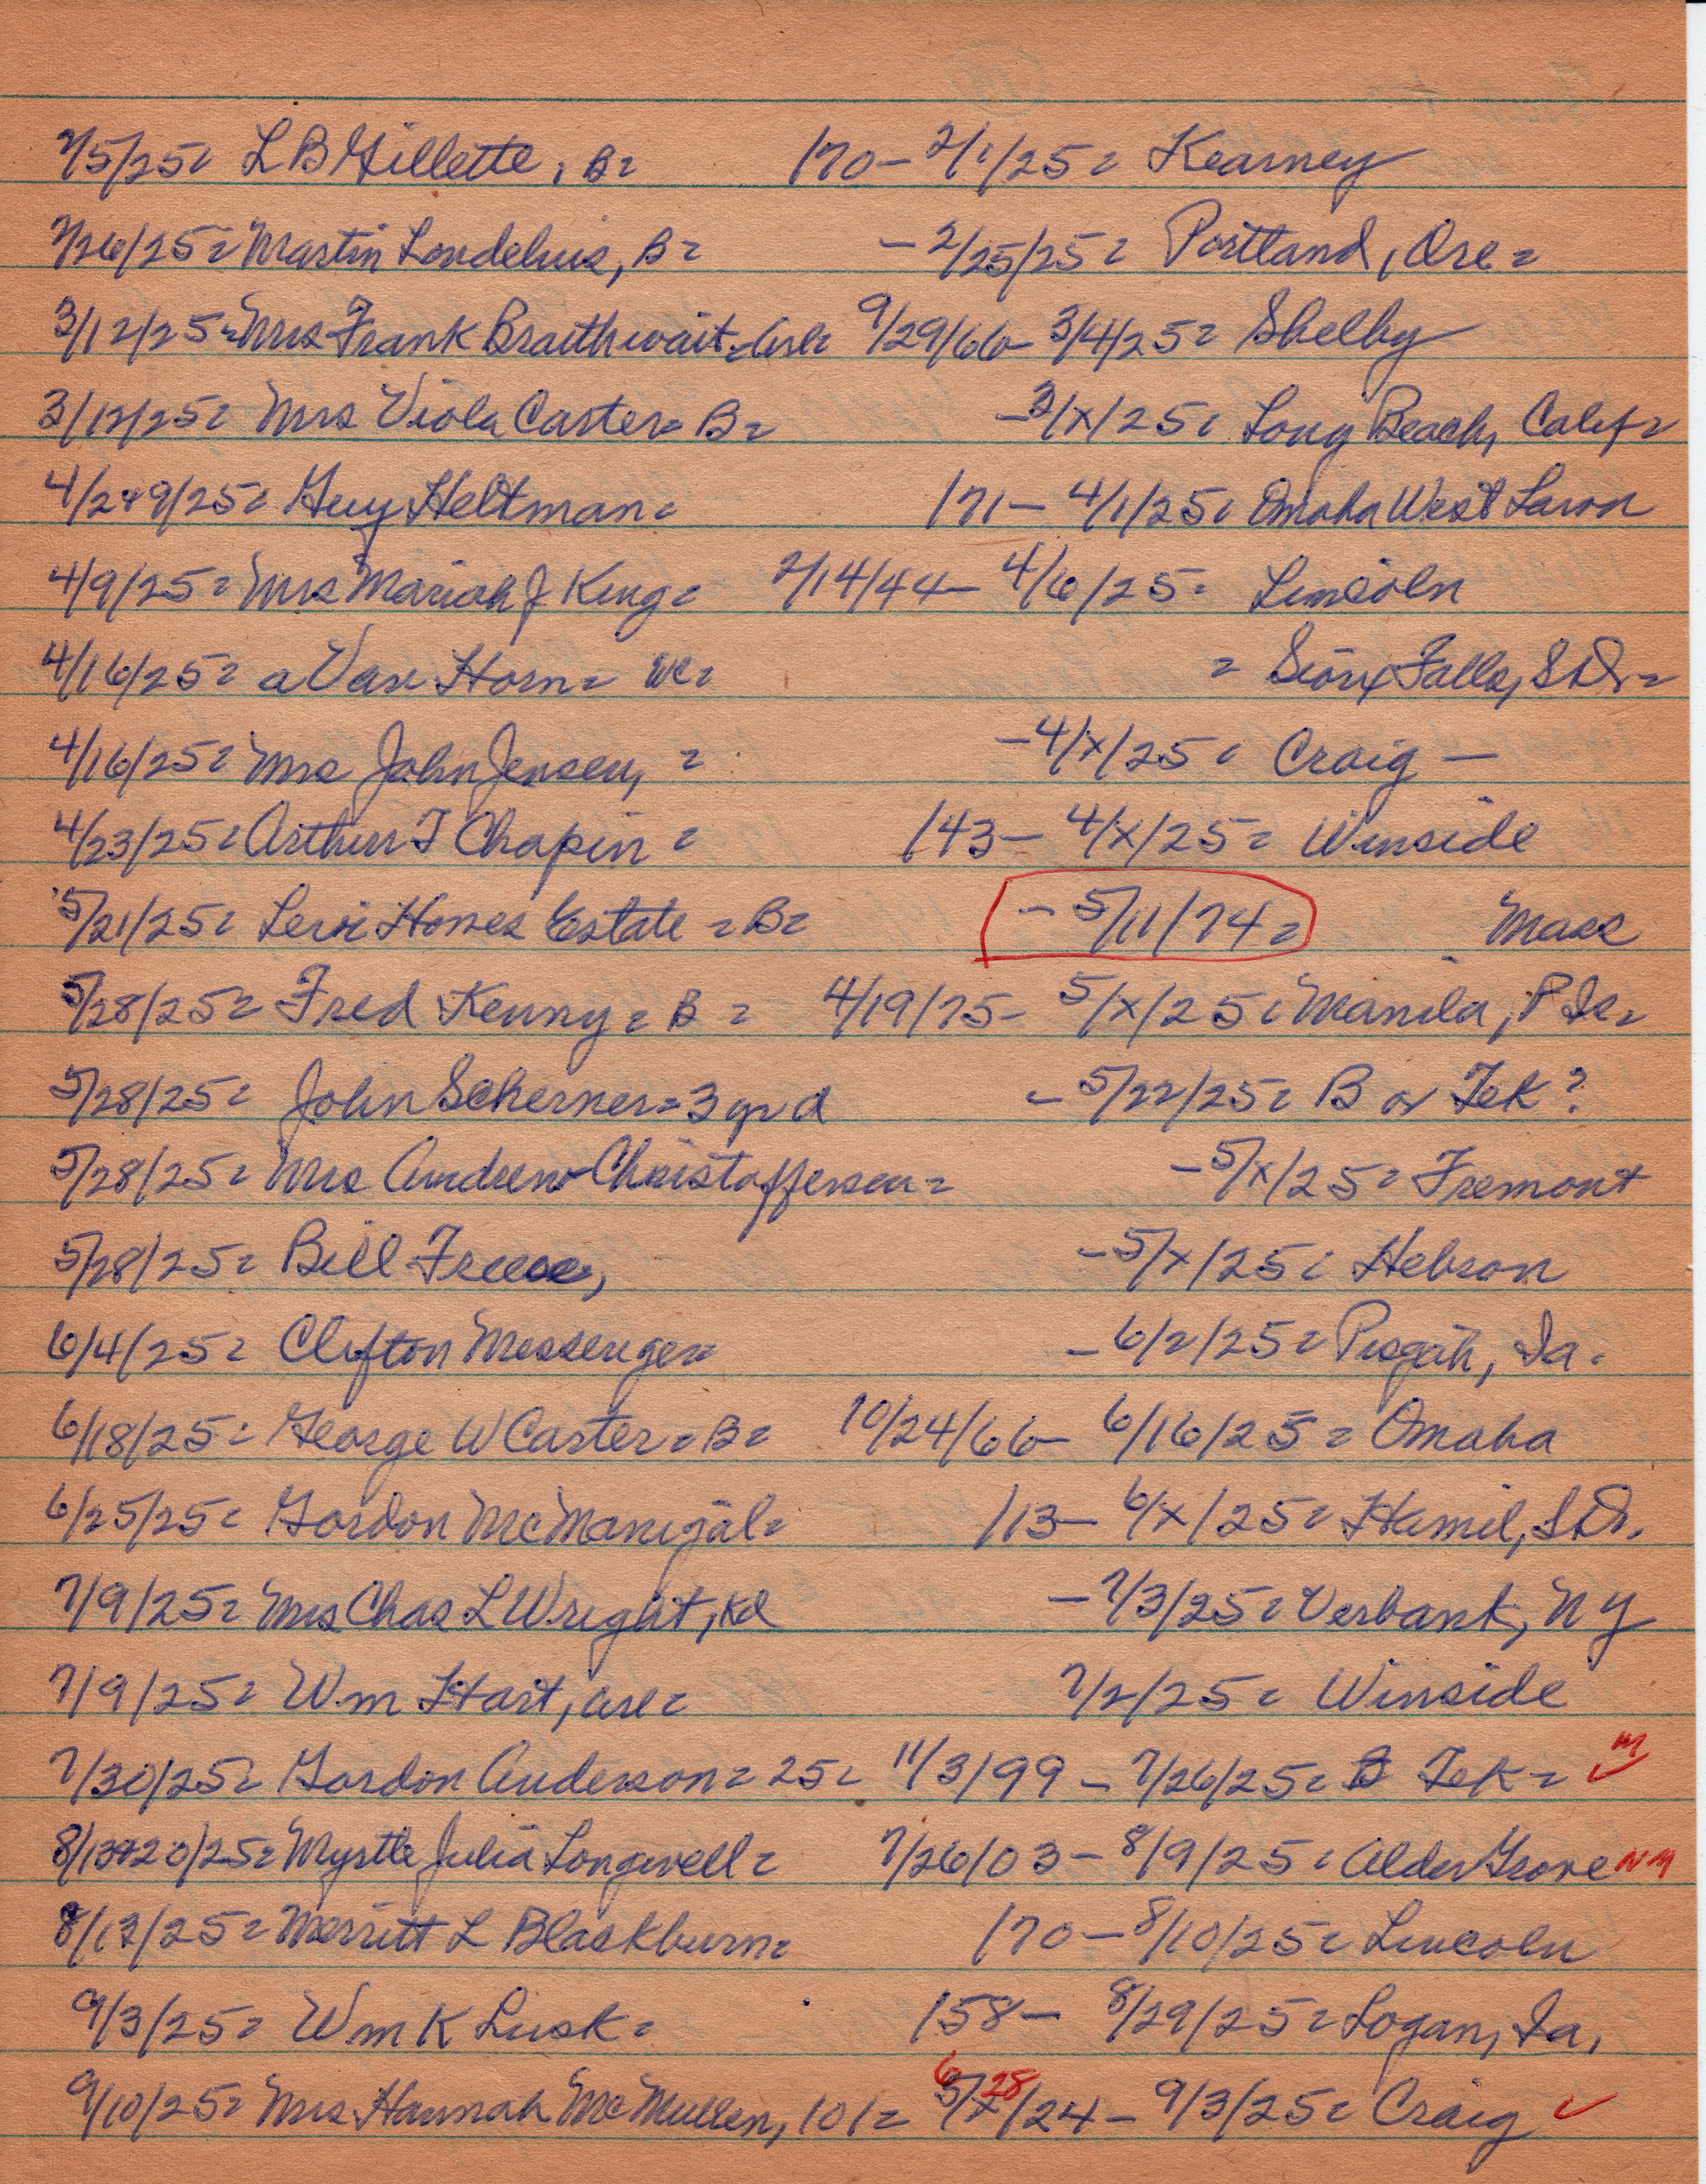 2/5/25= L B Gillette, B= /70- 2/1/25= Kearney
2/26/25= Martin Londelius, B= - 2/25/25= Portland, Ore=
3/12/25= Mrs Frank Braithwait= Arl= 9/29/66- 3/4/25= Shelby
3/12/25= Mrs Viola Carter= B= -3/x/25= Long Beach, Calif=
4/2+9/25= Guy Heltman= /71- 4/1/25= Omaha West Lawn
4/9/25= Mrs Mariah J King= 2/14/44- 4/6/25= Lincoln
4/16/25= A Van Horn= = Sioux Falls, S D=
4/16/25= Mrs John Jensen, = -4/x/25= Craig -
4/23/25= Arthur T Chapin = /43- 4/x/25= Winside
5/21/25= Levi Hones Estate = B= - 5/11/74= Mass
5/28/25= Fred Kenny= B = 4/19/75- 5/x/25= Manila, P Is=
5/28/25= John Scherner= 3 yr d - 5/22/25= B or Tek?
5/28/25= Mrs Andrew Christoffersen= -5/x/25= Fremont
5/28/25= Bill Freese, -5/x/25= Hebron
6/4/25= Clifton Messenger= - 6/2/25= Pisgah, Ia.
6/18/25= George W Carter= B= 10/24/66- 6/16/25= Omaha
6/25/25= Gordon McManigal= /13- 6/x/25= Hamil, S D.
7/9/25= Mrs Chas L Wright, Kd -7/3/25= Verbank, N Y
7/9/25= Wm Hart, Arl= 7/2/25= Winside
7/30/25= Gordon Anderson= 25= 11/3/99- 7/26/25= B Tek= M
8/13+20/25= Myrtle Julia Longwell= 7/26/03- 8/9/25= Alder Grove NM
8/13/25= Merritt L Blackburn= /70- 8/10/25= Lincoln
9/3/25= Wm K Lusk= /58- 8/29/25= Logan, Ia,
9/10/25= Mrs Hannah McMullen, 101= 6 5/x/24 28 - 9/3/25= Craig ✓